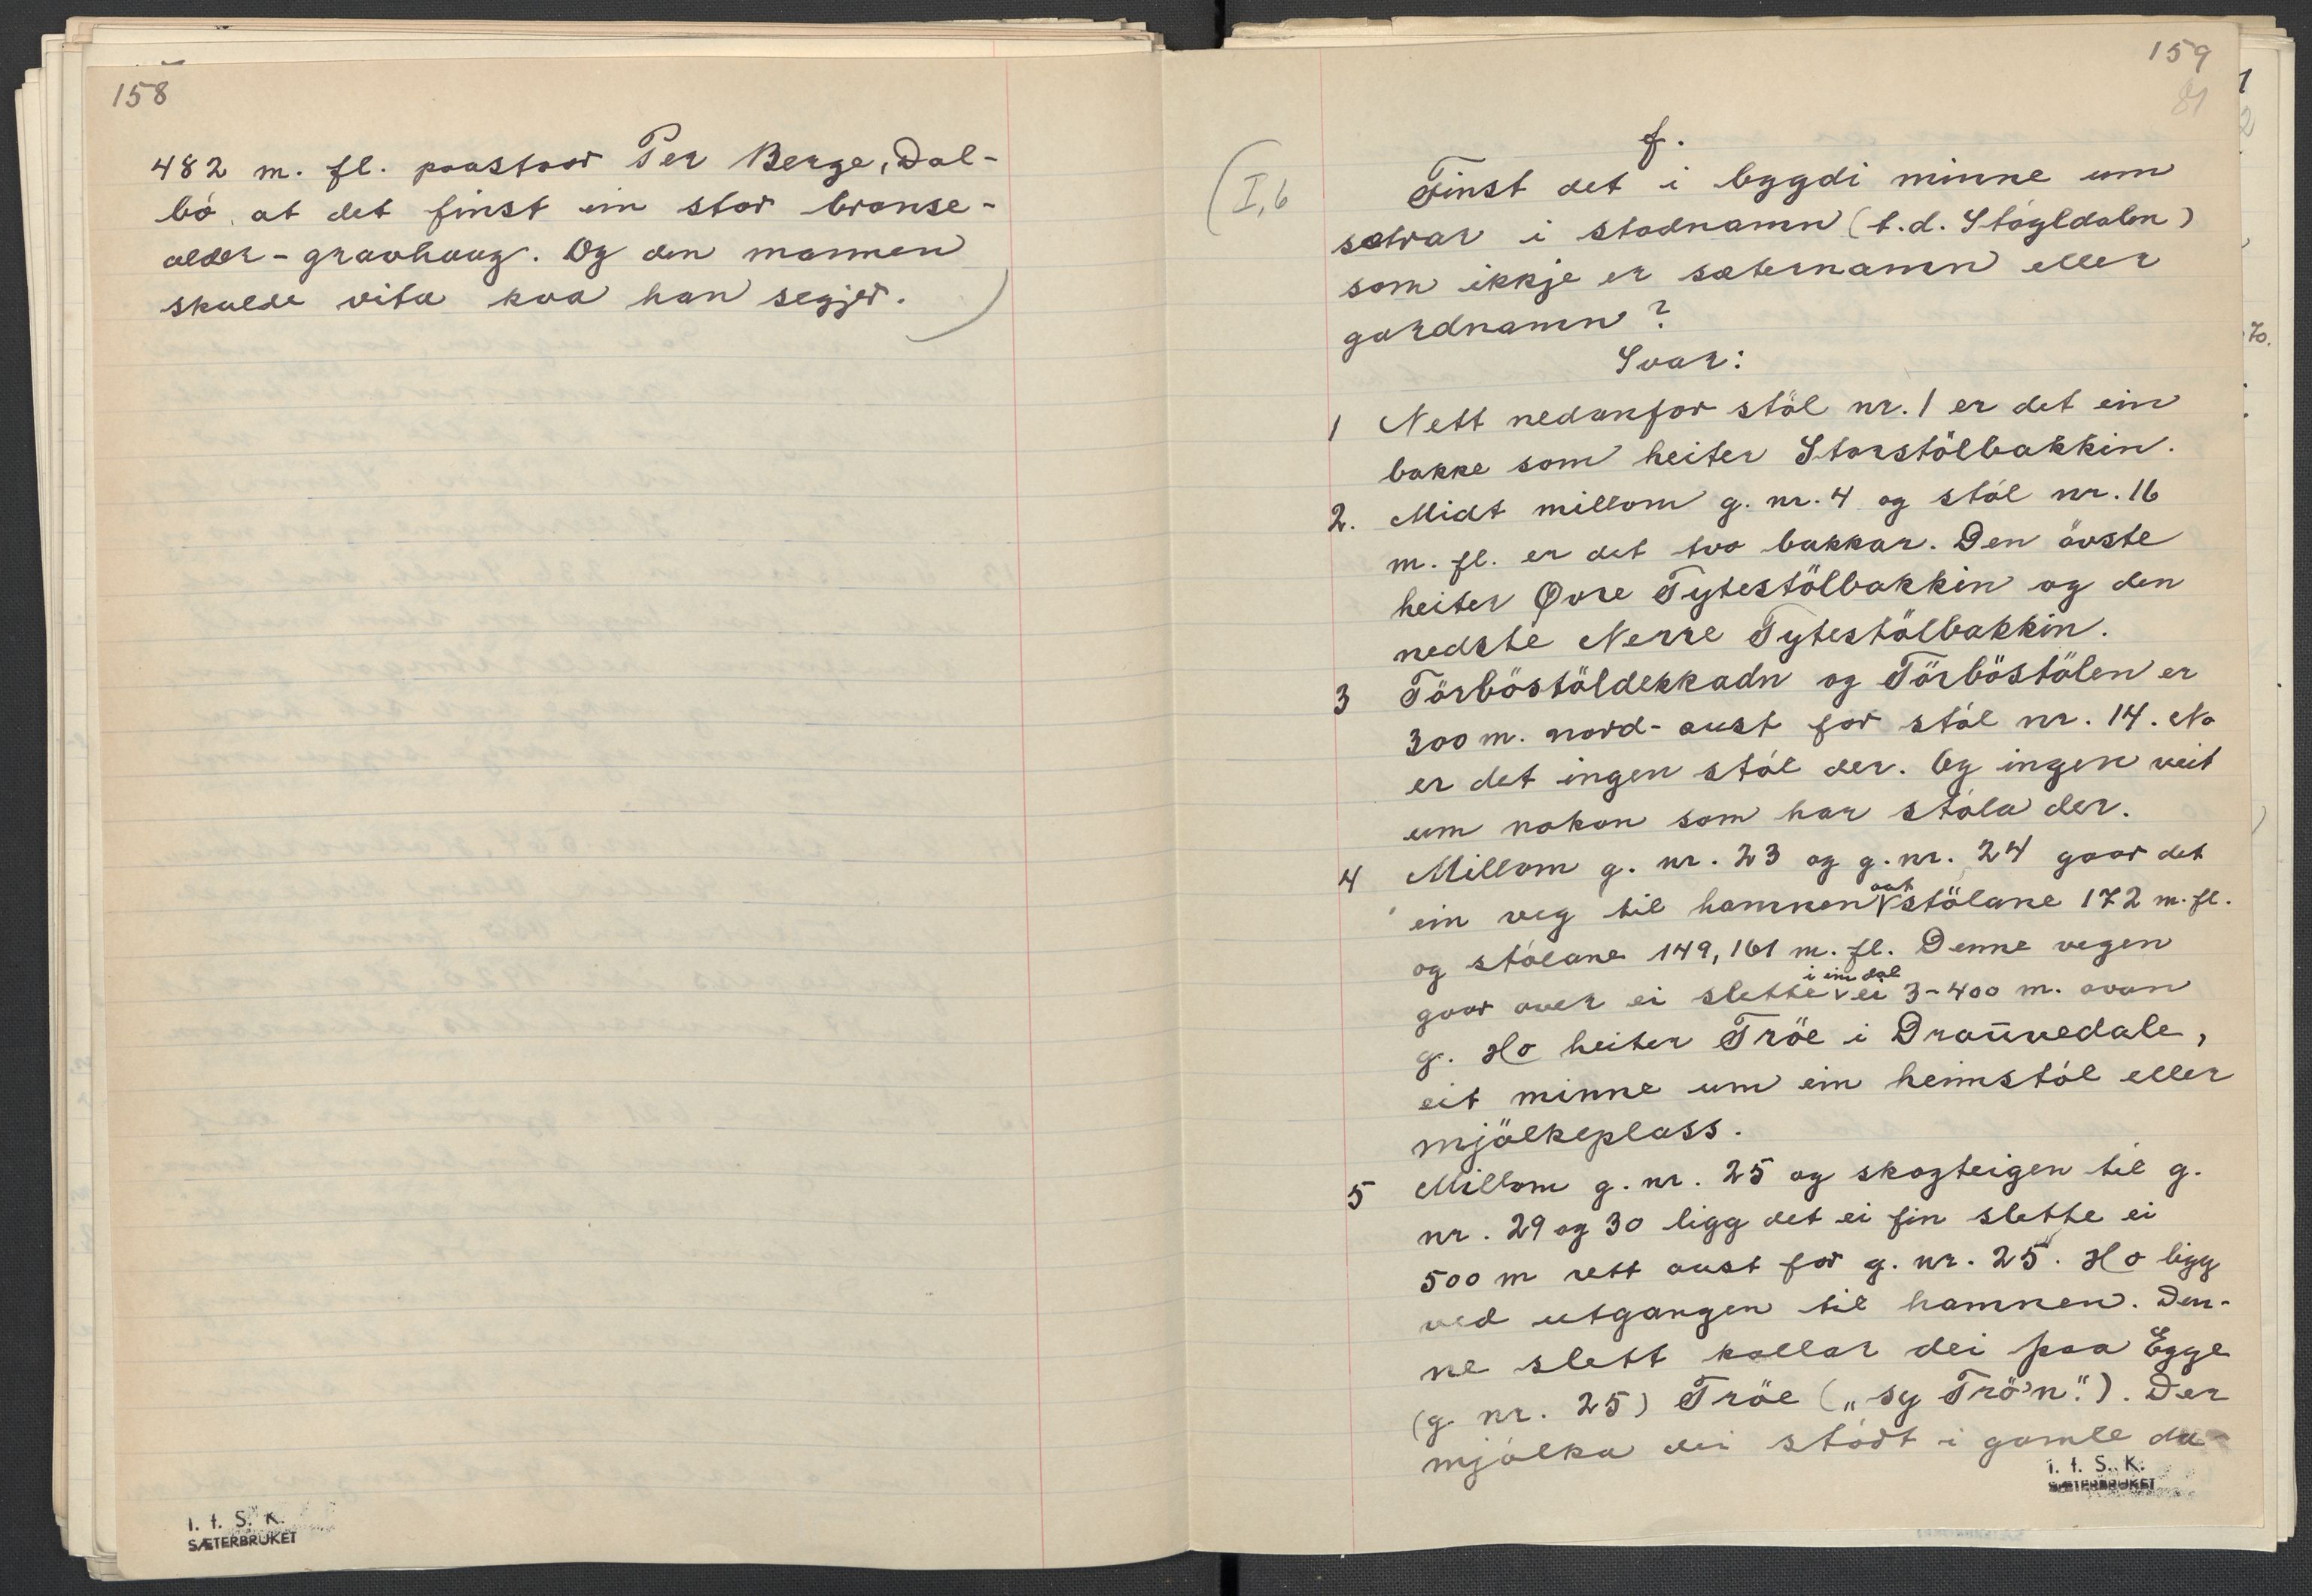 158
482 m. fl. paastaar Per Berge, Dal-
bö, at det finst ein stor bronse-
alder-gravhaug. Og den mannen
skulde vita kva han segjer.
I. f. S. K.
SÆTERBRUKET
159
81
(I, 6
f.
Finst det i bygdi minne um
sætrar i stadnamn (t.d. Stögldalen)
som ikkje er sæternamn eller
gardnamn?
Svar:
1 Nett nedanfor stöl nr. 1 er det ein
bakke som heiter Storstölbakkin.
2. Midt millom g. nr. 4 og stöl nr. 16
m. fl. er det tvo bakkar. Den övste
heiter Øvre Tytestölbakkin og den
nedste Nerre Tytestölbakkin.
3 Törböstöldekkadn og Törböstölen er
300 m. nord-aust for stöl nr. 14. No
er det ingen stöl der. Og ingen veit
um nokon som har stöla der.
4 Millom g. nr. 23 og g. nr. 24 gaar det
ein veg til hamnen aat stölane 172 m. fl.
og stölane 149, 161 m. fl. Denne vegen
gaar over ei slette i ein dal ei 3-400 m. ovan
g. Ho heiter Tröe i Draŭvedale,
eit minne um ein heimstöl eller
mjölkeplass.
5 Millom g. nr. 25 og skogteigen til g.
nr. 29 og 30 ligg det ei fin slette ei
500 m rett aust for g. nr. 25. Ho ligg
ved utgangen til hamnen. Den-
ne slett kallar dei paa Egge
(g. nr. 25) Tröe („sy Trö'n"). Der
mjölka dei stödt i gamle da-
I. f. S. K.
SÆTERBRUKET